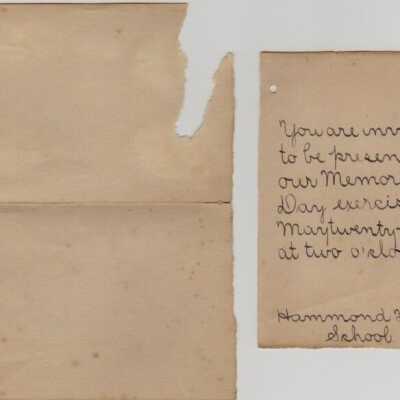 You are inv
to be presen
our Memor
Day exercis
May twenty-
at two o'clo
Hammond
School